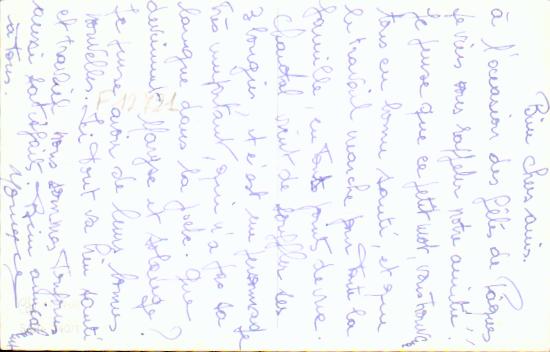 Bien chers amis.
à l'occasion des fêtes de Pâques
je viens vous rappeler notre amitié !!
Je pense que ce petit mot, vous trouve
tous en bonne santé, et que
le travail marche pour toute la
famille, en tout points de vue.
Chantal vient de souffler ses
3 bougies, et c'est un personnage
très important, qui n'a pas sa
langue dans la poche. Que
deviennent Maryse et Solange ?
Je pense avoir de leurs bonnes
nouvelles. Ici tout va bien santé
et travail nous sommes toujours
aussi satisfait. Bien amicalement
à tous.
F 12721